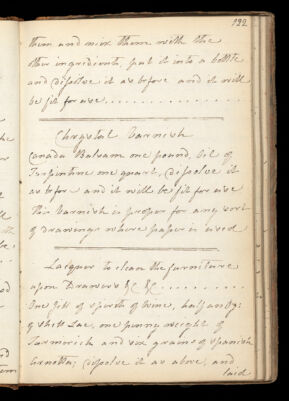 132
them and mix them with the
other ingredients, put it into a bottle
and dissolve it as before and it will
be fit for use
Chrystal Varnish
Canada Balsam one pound, Oil of
Turpintine one quart, dissolve it
as before and it will be fit for use
This Varnish is proper for any sort
of drawings where paper is used
Lacquer to clean the furniture
upon Drawers &c &c
One Gill of spirits of Wine, half an oz:
of shell Lac, one penny weight of
Turmerick and six grains of spanish
Annetto; dissolve it as above, and
laid